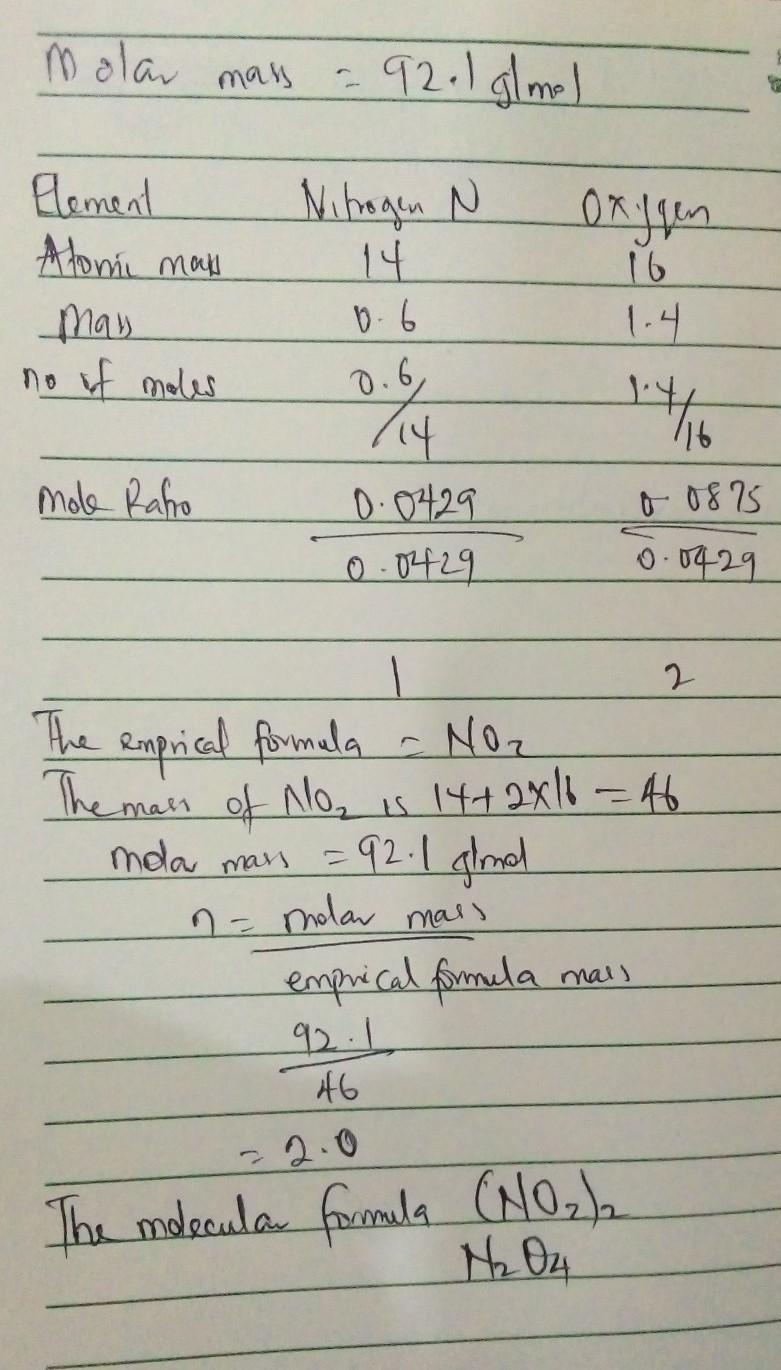 Molar mass = 92.1 g/mol
Element Nitrogen N Oxygen
Atomic mass 14 16
Mass 0.6 1.4
no of moles 0.6/14 1.4/16
Mole Ratio 0.0429 0.0875
0.0429 0.0429
1 2
The emprical formula = NO2
The mass of NO2 is 14+2x16 = 46
molar mass = 92.1 g/mol
n = molar mass
emprical formula mass
92.1
46
= 2.0
The molecular formula (NO2)2
N2O4